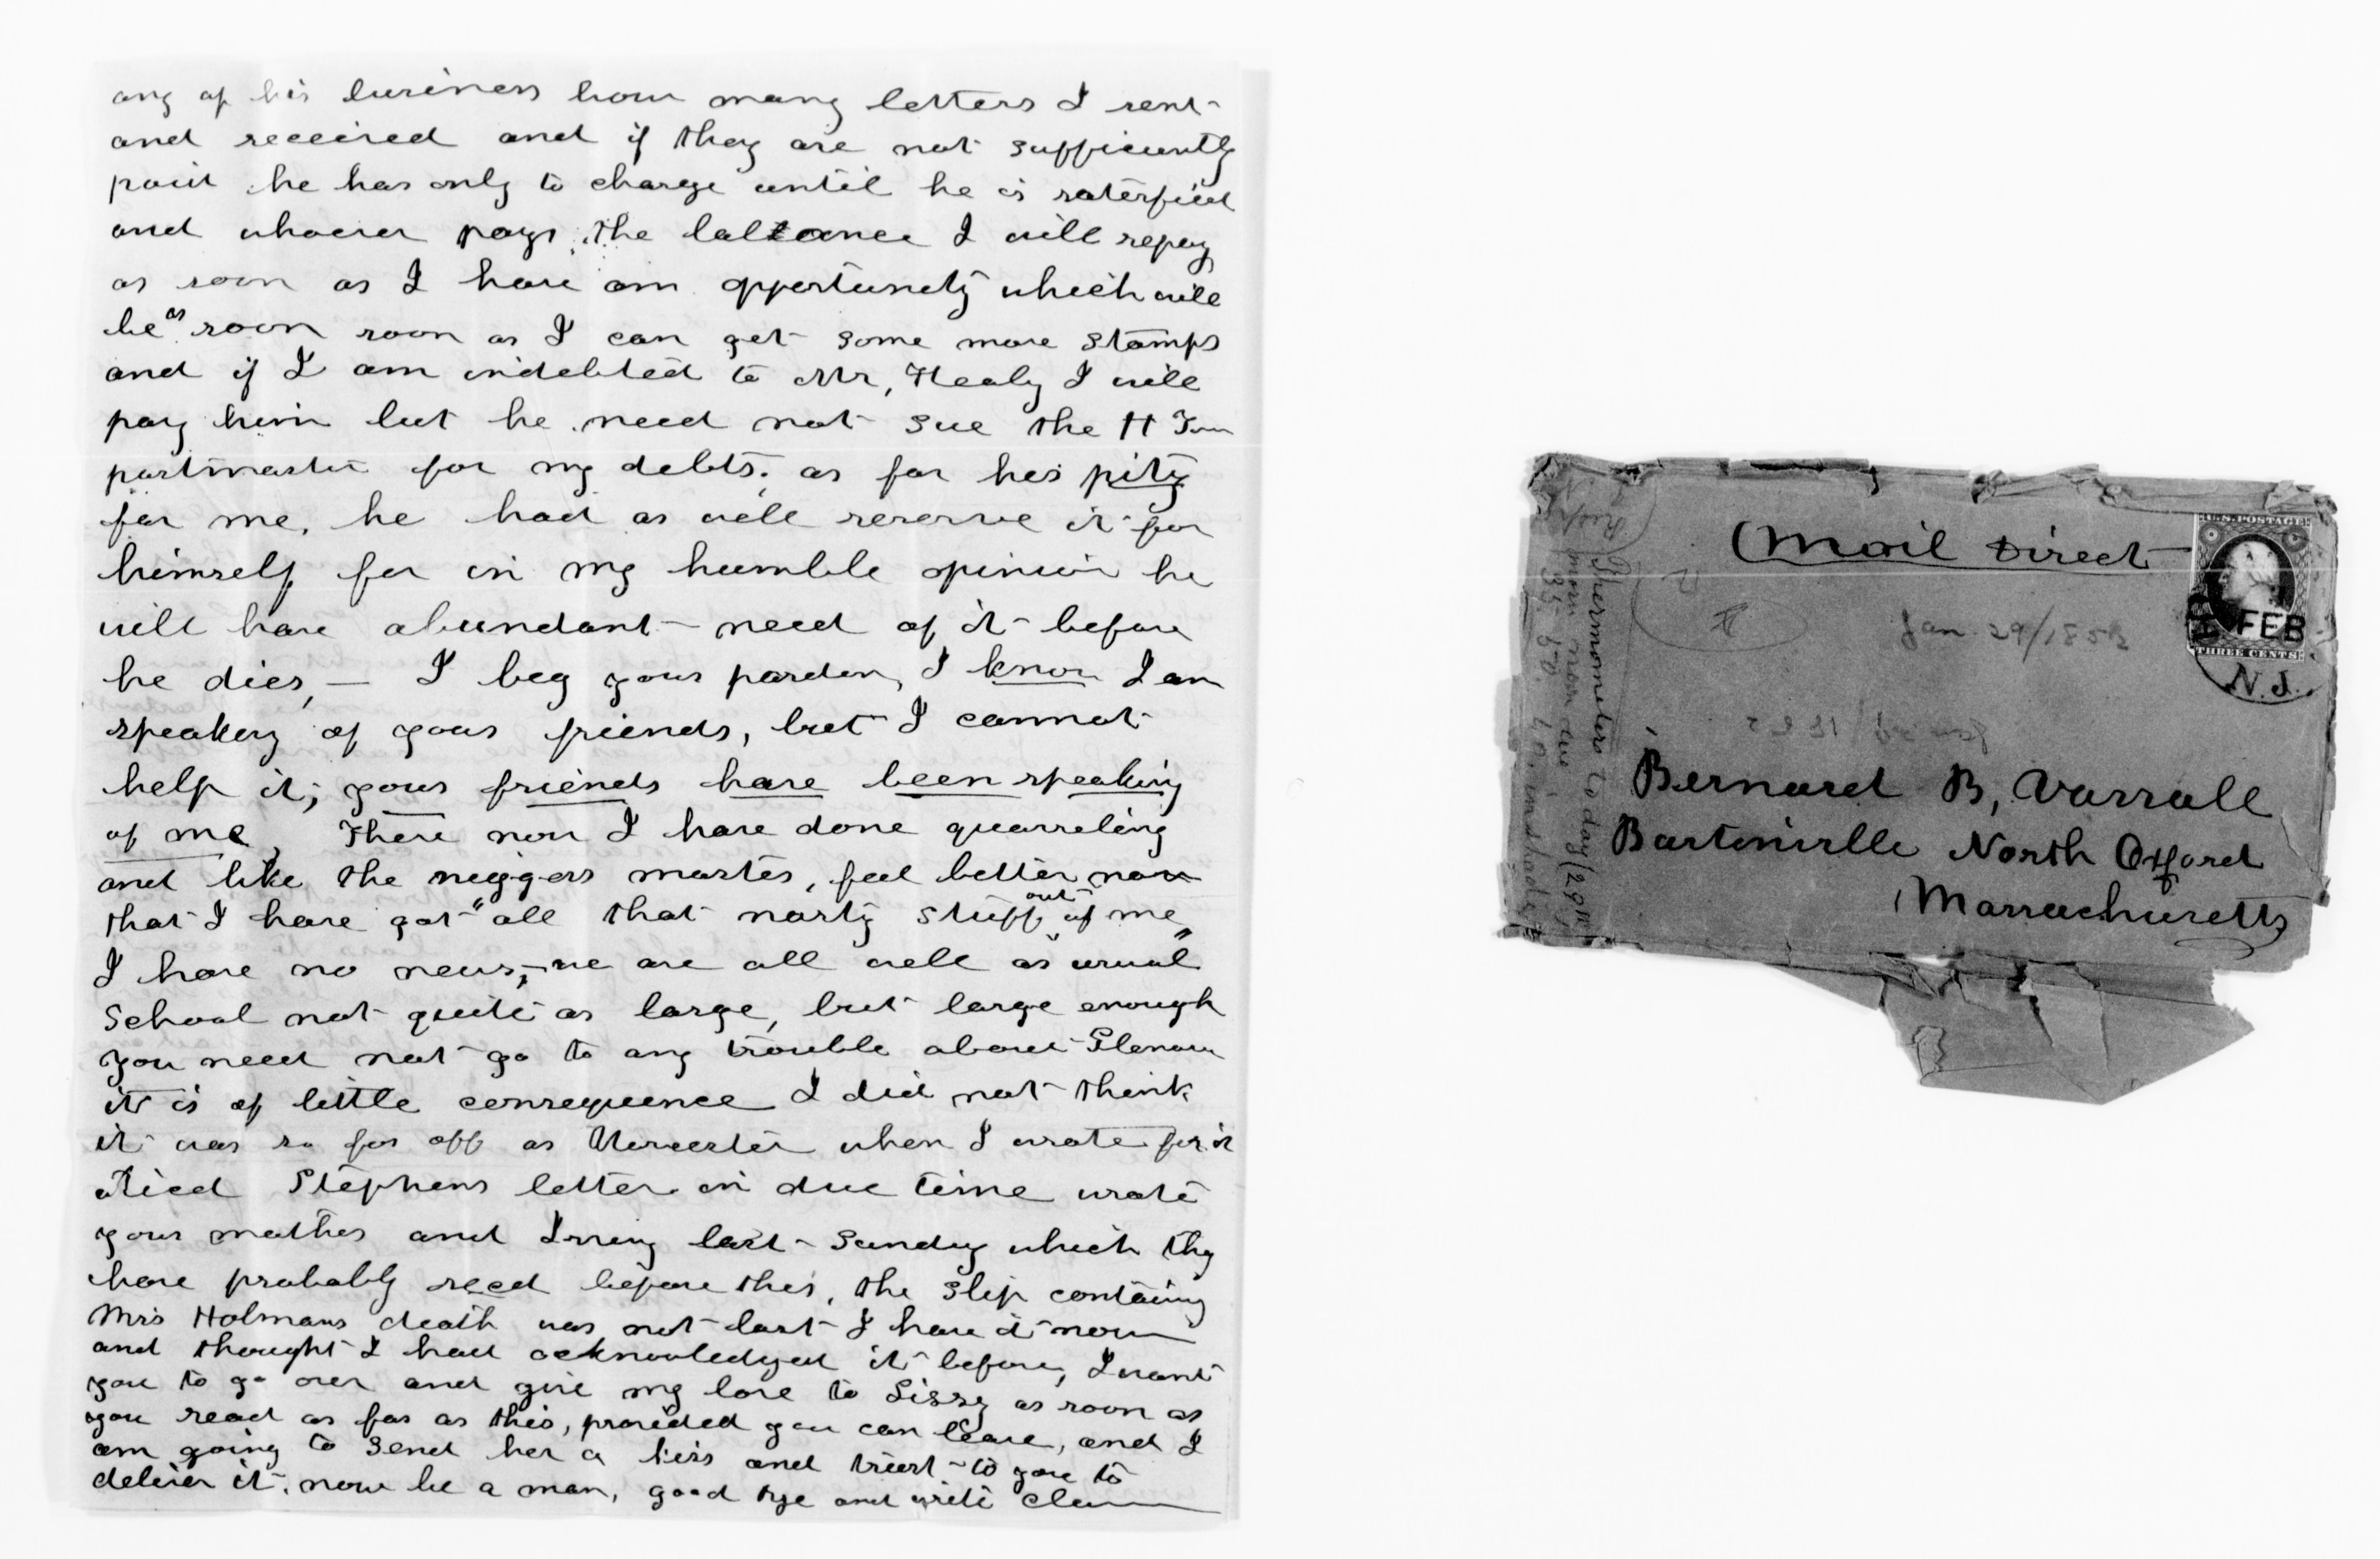 any of his business how many letters I sent
and received and if they are not sufficiently
paid he has only to charge until he is satersfied
and whoever pays the ballance I will repay
as soon as I have an oppertunity which will
be as soon soon as I can get some more stamps
and if I am indebted to Mr, Healy I will
pay him but he need not sue the H Town
postmaster for my debts; as for his pity
for me, he had as well reserve it for
himself for in my humble opinion he
will have abundant need of it before
he dies, — I beg your pardon, I know I am
speaking of your friends, but I cannot
help it; your friends have been speaking
of me, There now I have done quarreling
and like the niggers master, feel better now
that I have got "all that nasty stuff out of me"
I have no news, we are all well as usual
School not quite as large, but large enough
you need not go to any trouble about
it is of little consequence I did not think
it was so far off as Worcester when I wrote for it
Stephens letter in due time wrote
your mother and Irving last Sunday which they
have probably recd before this, the slip containing
Mrs Holmans death was not lost I have it now
and thought I had acknowledged it before, I want
you to go over and give my love to Lissy as soon as
you read as far as this, provided you can leave, and I
am going to send her a kiss and trust to you to
deliver it, now be a man, good bye and write Clara
Mail Direct
U.S. POSTAGE
THREE CENTS
FEB
N.J.
Jan. 29/1852
Bernard B, Vassall
Bartonville North Oxford
Massachusetts
Thermometers to day (29th
morn noon
35. 50. 40. in shade